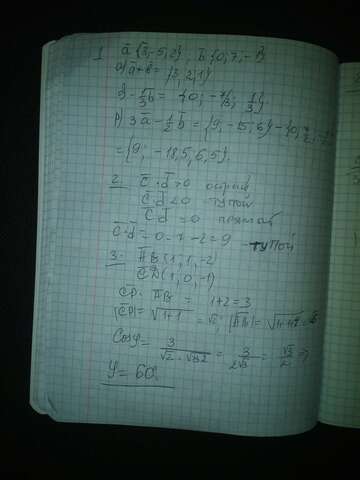 1 a̅ {3, -5, 2}, b̅ {0, 7, -1}
a) a̅ + b̅ = {3, 2, 1}
б) -⅓b̅ = {0; -7/3; 1/3}
в) 3a̅ - ½b̅ = {9, -15, 6} - {0, 7/2,
= {9; -18,5, 6,5}.
2. c̅·d̅ >0 острый
c̅·d̅ <0 тупой
c̅·d̅ =0 прямой
c̅·d̅ = 0-7-2=9 - тупой
3. AB (1, 1, -2)
CD (1, 0, -1)
CD · AB = 1+2=3
|CD| = √1+1 = √2, |AB| =
Cosφ = 3 = 3/2√3 = √3/2 ⇒
φ = 60.